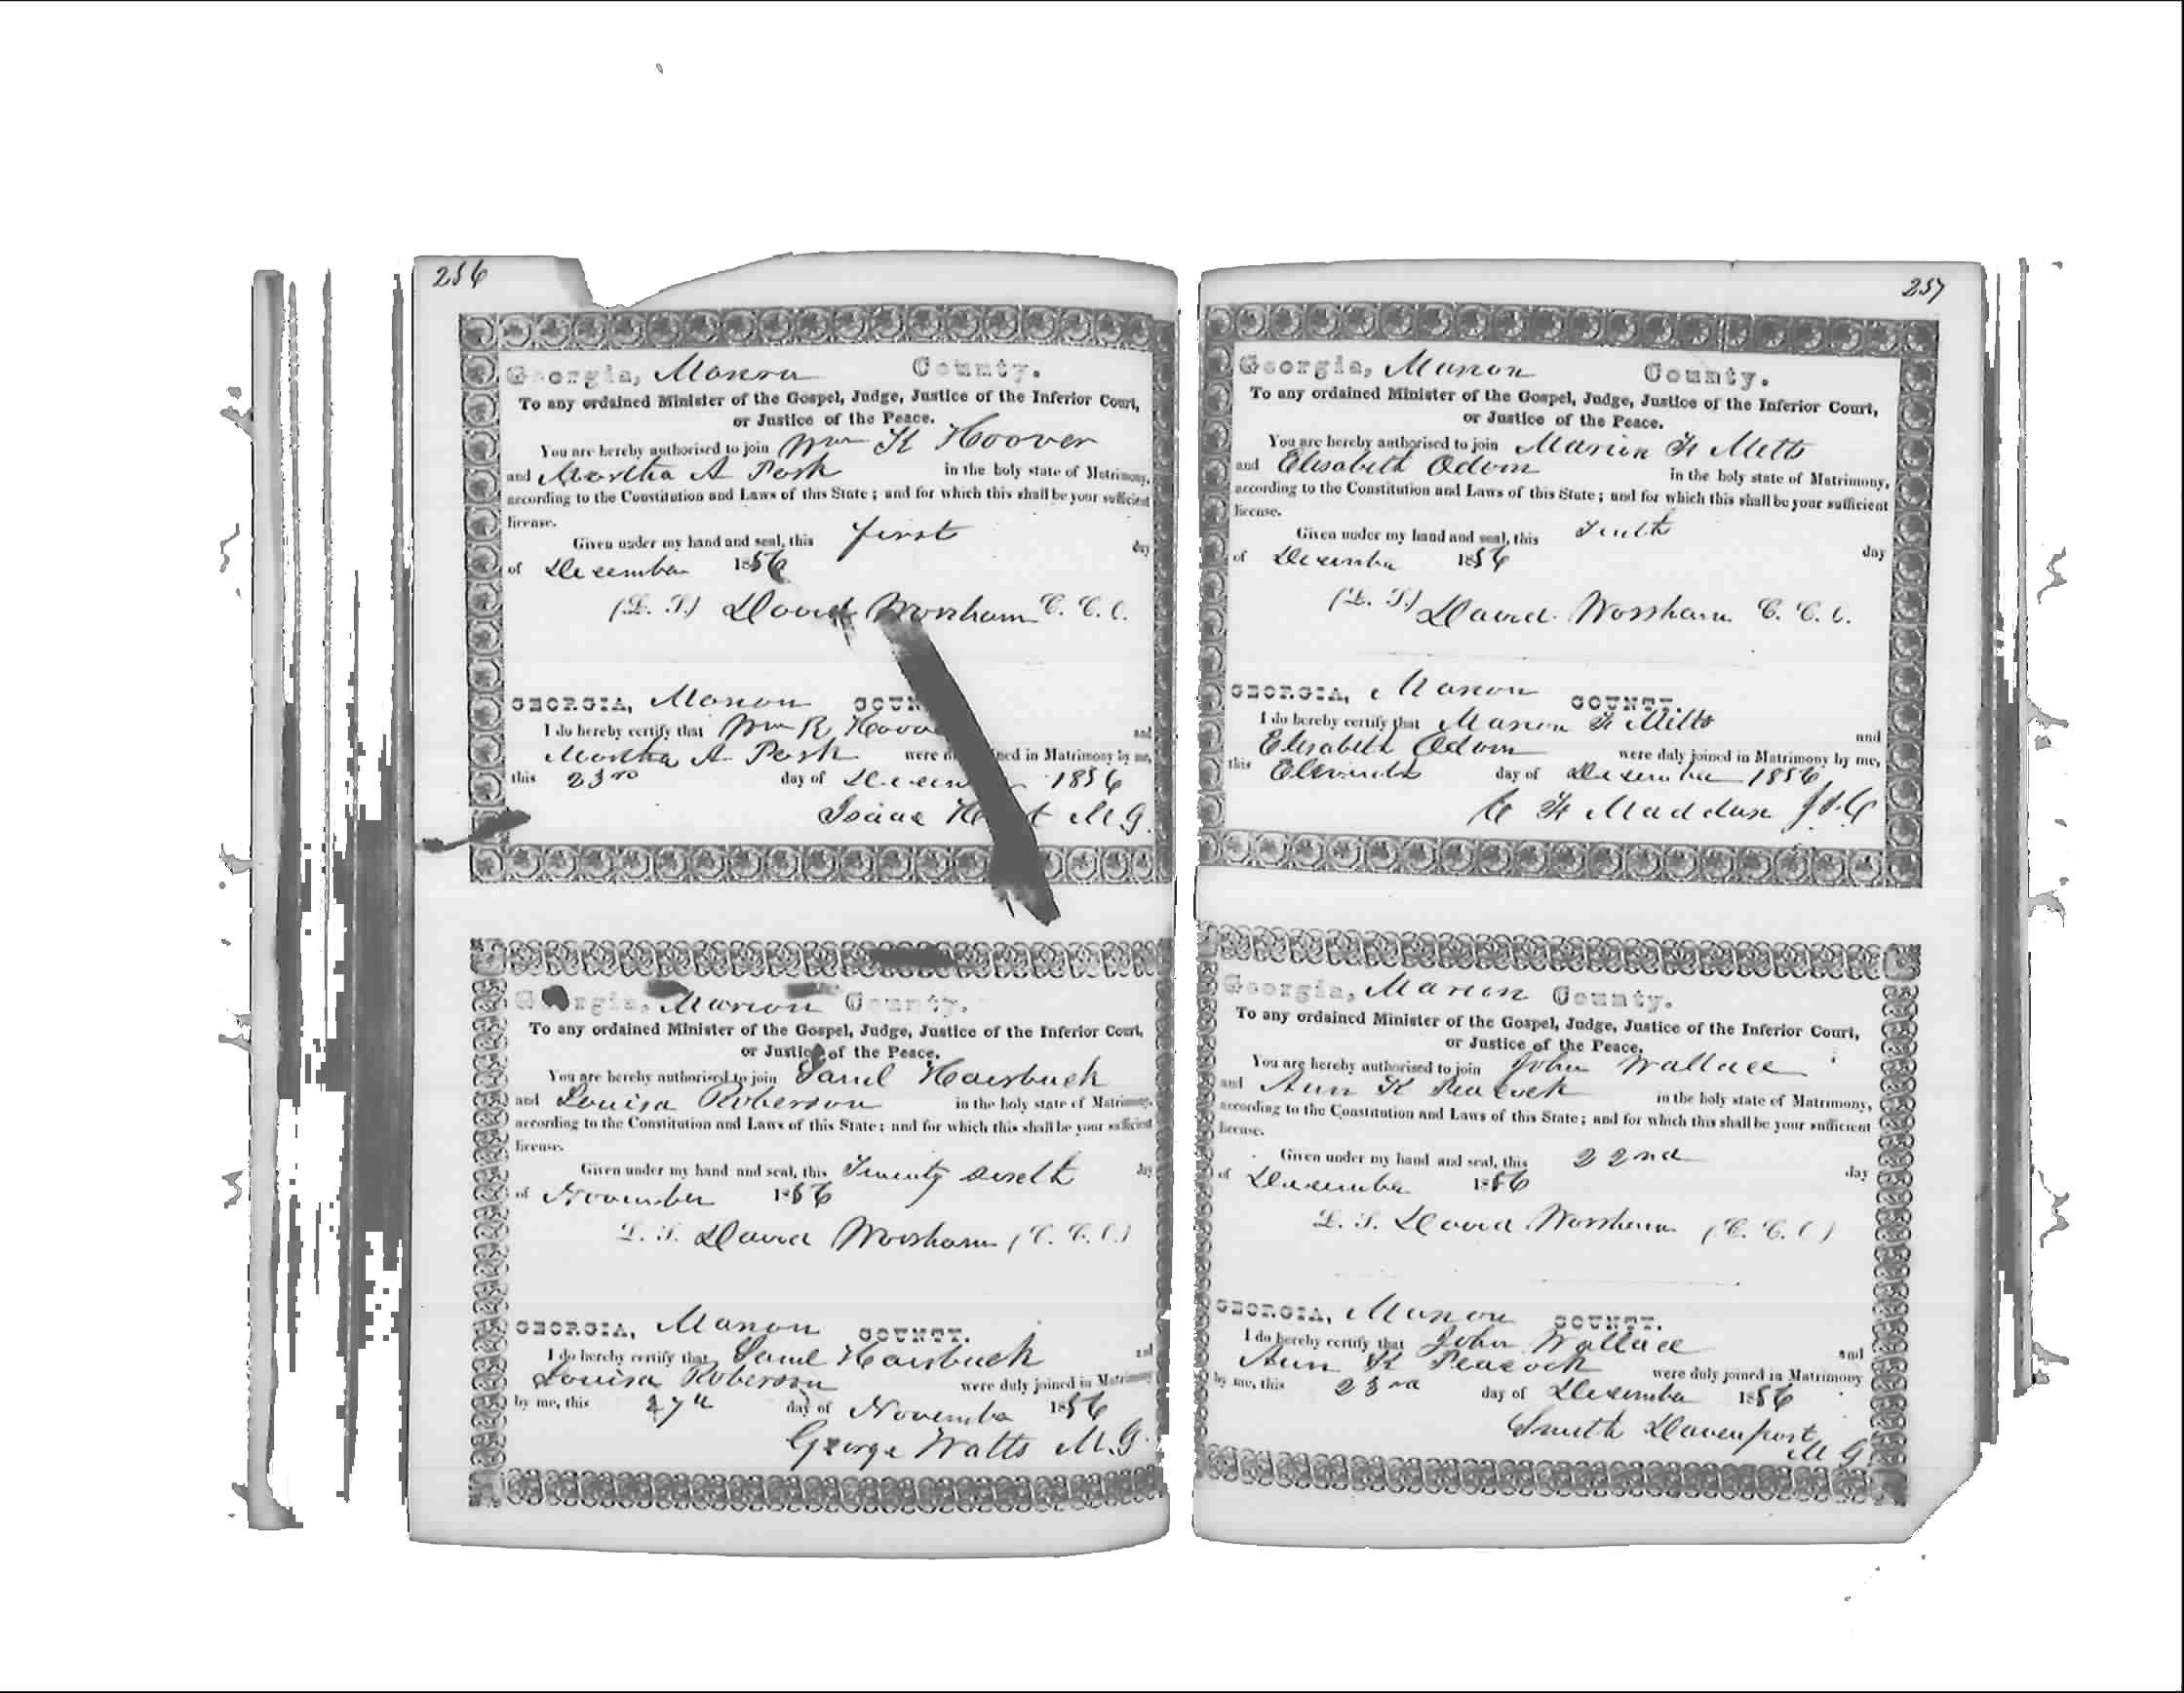 256
Georgia, Marion County.
To any ordained Minister of the Gospel, Judge, Justice of the Inferior Court,
or Justice of the Peace.
You are hereby authorised to join Wm K Hoover
and Martha A Posh in the holy state of Matrimony,
according to the Constitution and Laws of this State; and for which this shall be your sufficient
license.
Given under my hand and seal, this first day
of December 1856
(L. S.) David Worsham C. C. C.
GEORGIA, Marion COUN
I do hereby certify that Wm R Hoov and
Martha A Posh were d ned in Matrimony by me,
this 23rd day of Decem 1856
Isaac H t M.G.
Georgia, Marion County.
To any ordained Minister of the Gospel, Judge, Justice of the Inferior Court,
or Justice of the Peace.
You are hereby authorised to join Saml Hairbuck
and Louisa Roberson in the holy state of Matrimony,
according to the Constitution and Laws of this State; and for which this shall be your sufficient
license.
Given under my hand and seal, this Twenty sixth day
of November 1856
L. S. David Worsham (C. C. C.)
GEORGIA, Marion COUNTY.
I do hereby certify that Saml Hairbuck and
Louisa Roberson were duly joined in Matrimony
by me, this 27th day of November 1856
George Watts M.G.
257
Georgia, Marion County.
To any ordained Minister of the Gospel, Judge, Justice of the Inferior Court,
or Justice of the Peace.
You are hereby authorised to join Marion F Metts
and Elisabeth Odom in the holy state of Matrimony,
according to the Constitution and Laws of this State; and for which this shall be your sufficient
license.
Given under my hand and seal, this Tenth day
of December 1856
(L. S.) David Worsham C. C. C.
GEORGIA, Marion COUNTY.
I do hereby certify that Marion F Metts and
Elisabeth Odom were duly joined in Matrimony by me,
this Eleventh day of December 1856
F Maddux J.I.C
Georgia, Marion County.
To any ordained Minister of the Gospel, Judge, Justice of the Inferior Court,
or Justice of the Peace.
You are hereby authorised to join John Wallace
and Ann K Peacock in the holy state of Matrimony,
according to the Constitution and Laws of this State; and for which this shall be your sufficient
license.
Given under my hand and seal, this 22nd day
of December 1856
L. S. David Worsham (C. C. C)
GEORGIA, Marion COUNTY.
I do hereby certify that John Wallace and
Ann K Peacock were duly joined in Matrimony
by me, this 23rd day of December 1856
Smith Davenport
M G